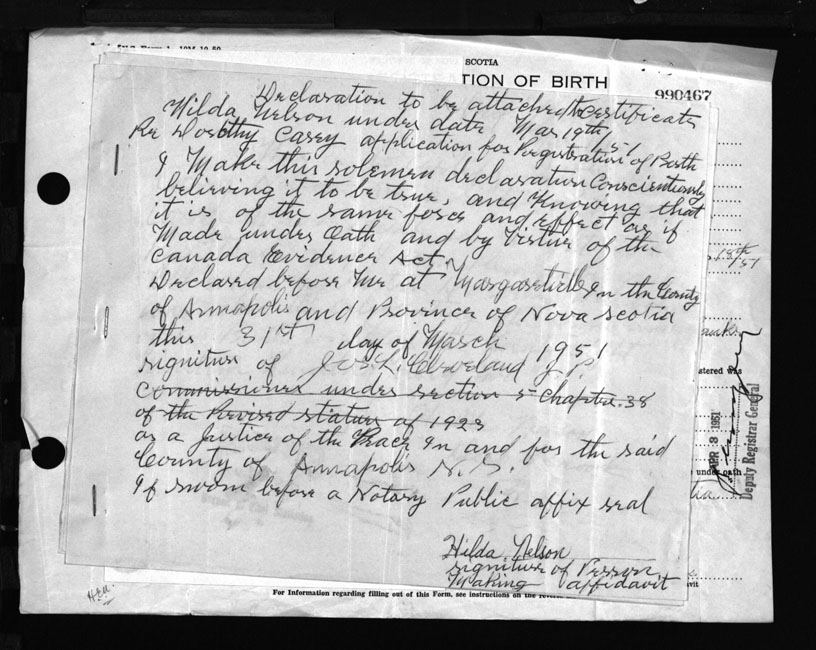 SCOTIA
TION OF BIRTH
990467
Declaration to be attached to Certificate
Hilda Nelson under date Mar 19th/51
Re Dorothy Casey application for Registration of Birth
I Make this solemen declaration Conscientiously
believing it to be true, and Knowing that
it is of the same force and effect as if
Made under Oath and by Virtue of the
Canada Evidence Act.
Declared before me at Margaretville In the County
of Annapolis and Province of Nova Scotia
this 31st day of March 1951
signiture of Jos. L. Cleveland J P.
Commissioned under section 5 Chapter. 38
of the Revised statues of 1923
as a Justice of the Peace In and for the said
County of Annapolis N. S.
If sworn before a Notary Public affix seal
Hilda. Nelson
signiture of Person
Making affidavit
stered was
APR 3 1951
Deputy Registrar General
under oath
For Information regarding filling out of this Form, see instructions on the reverse